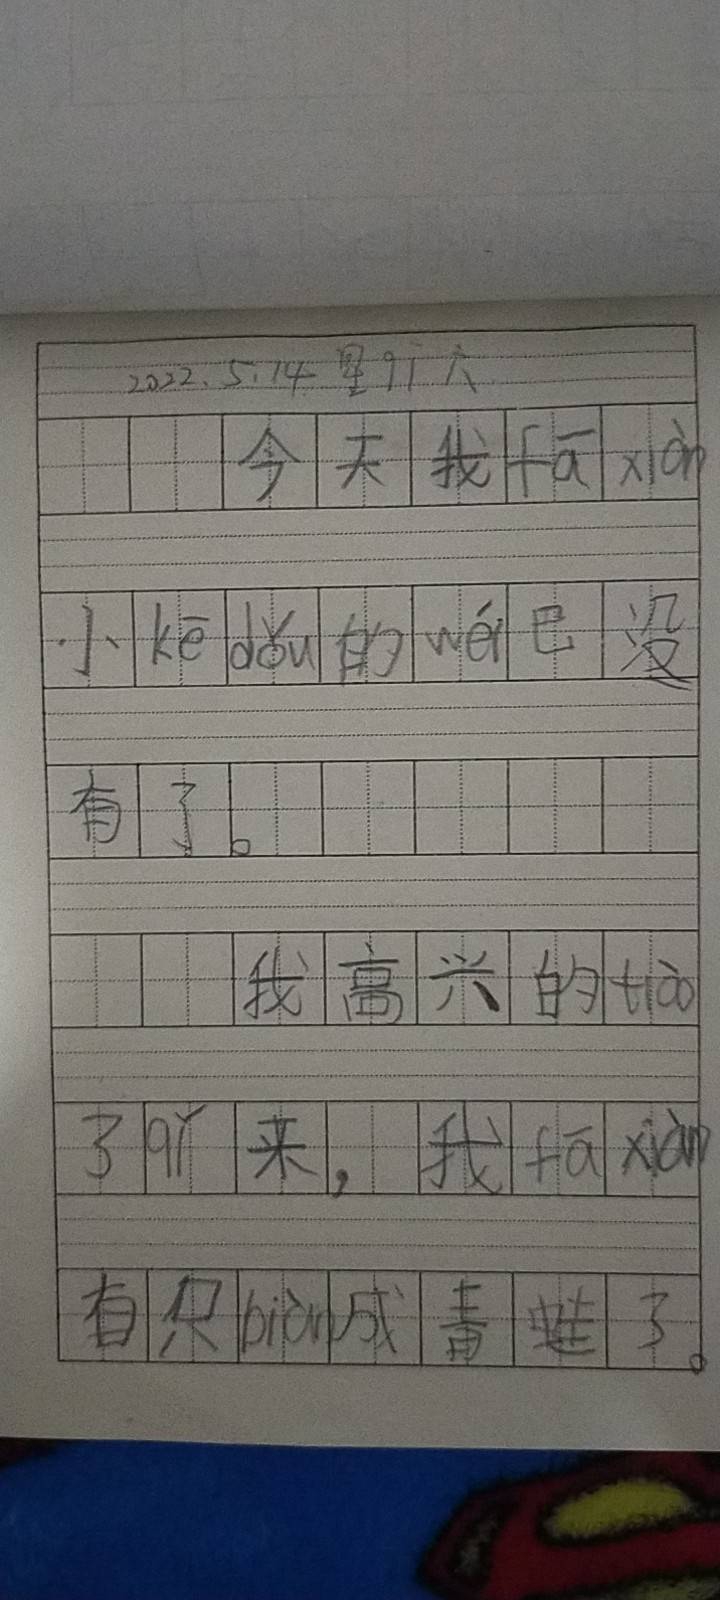 2022.5.14 星qī六
今天我fā xiàn
小kē dǒu的wéi巴没
有了。
我高兴的tiào
了qǐ来,我fā xiàn
有只biàn成青蛙了。